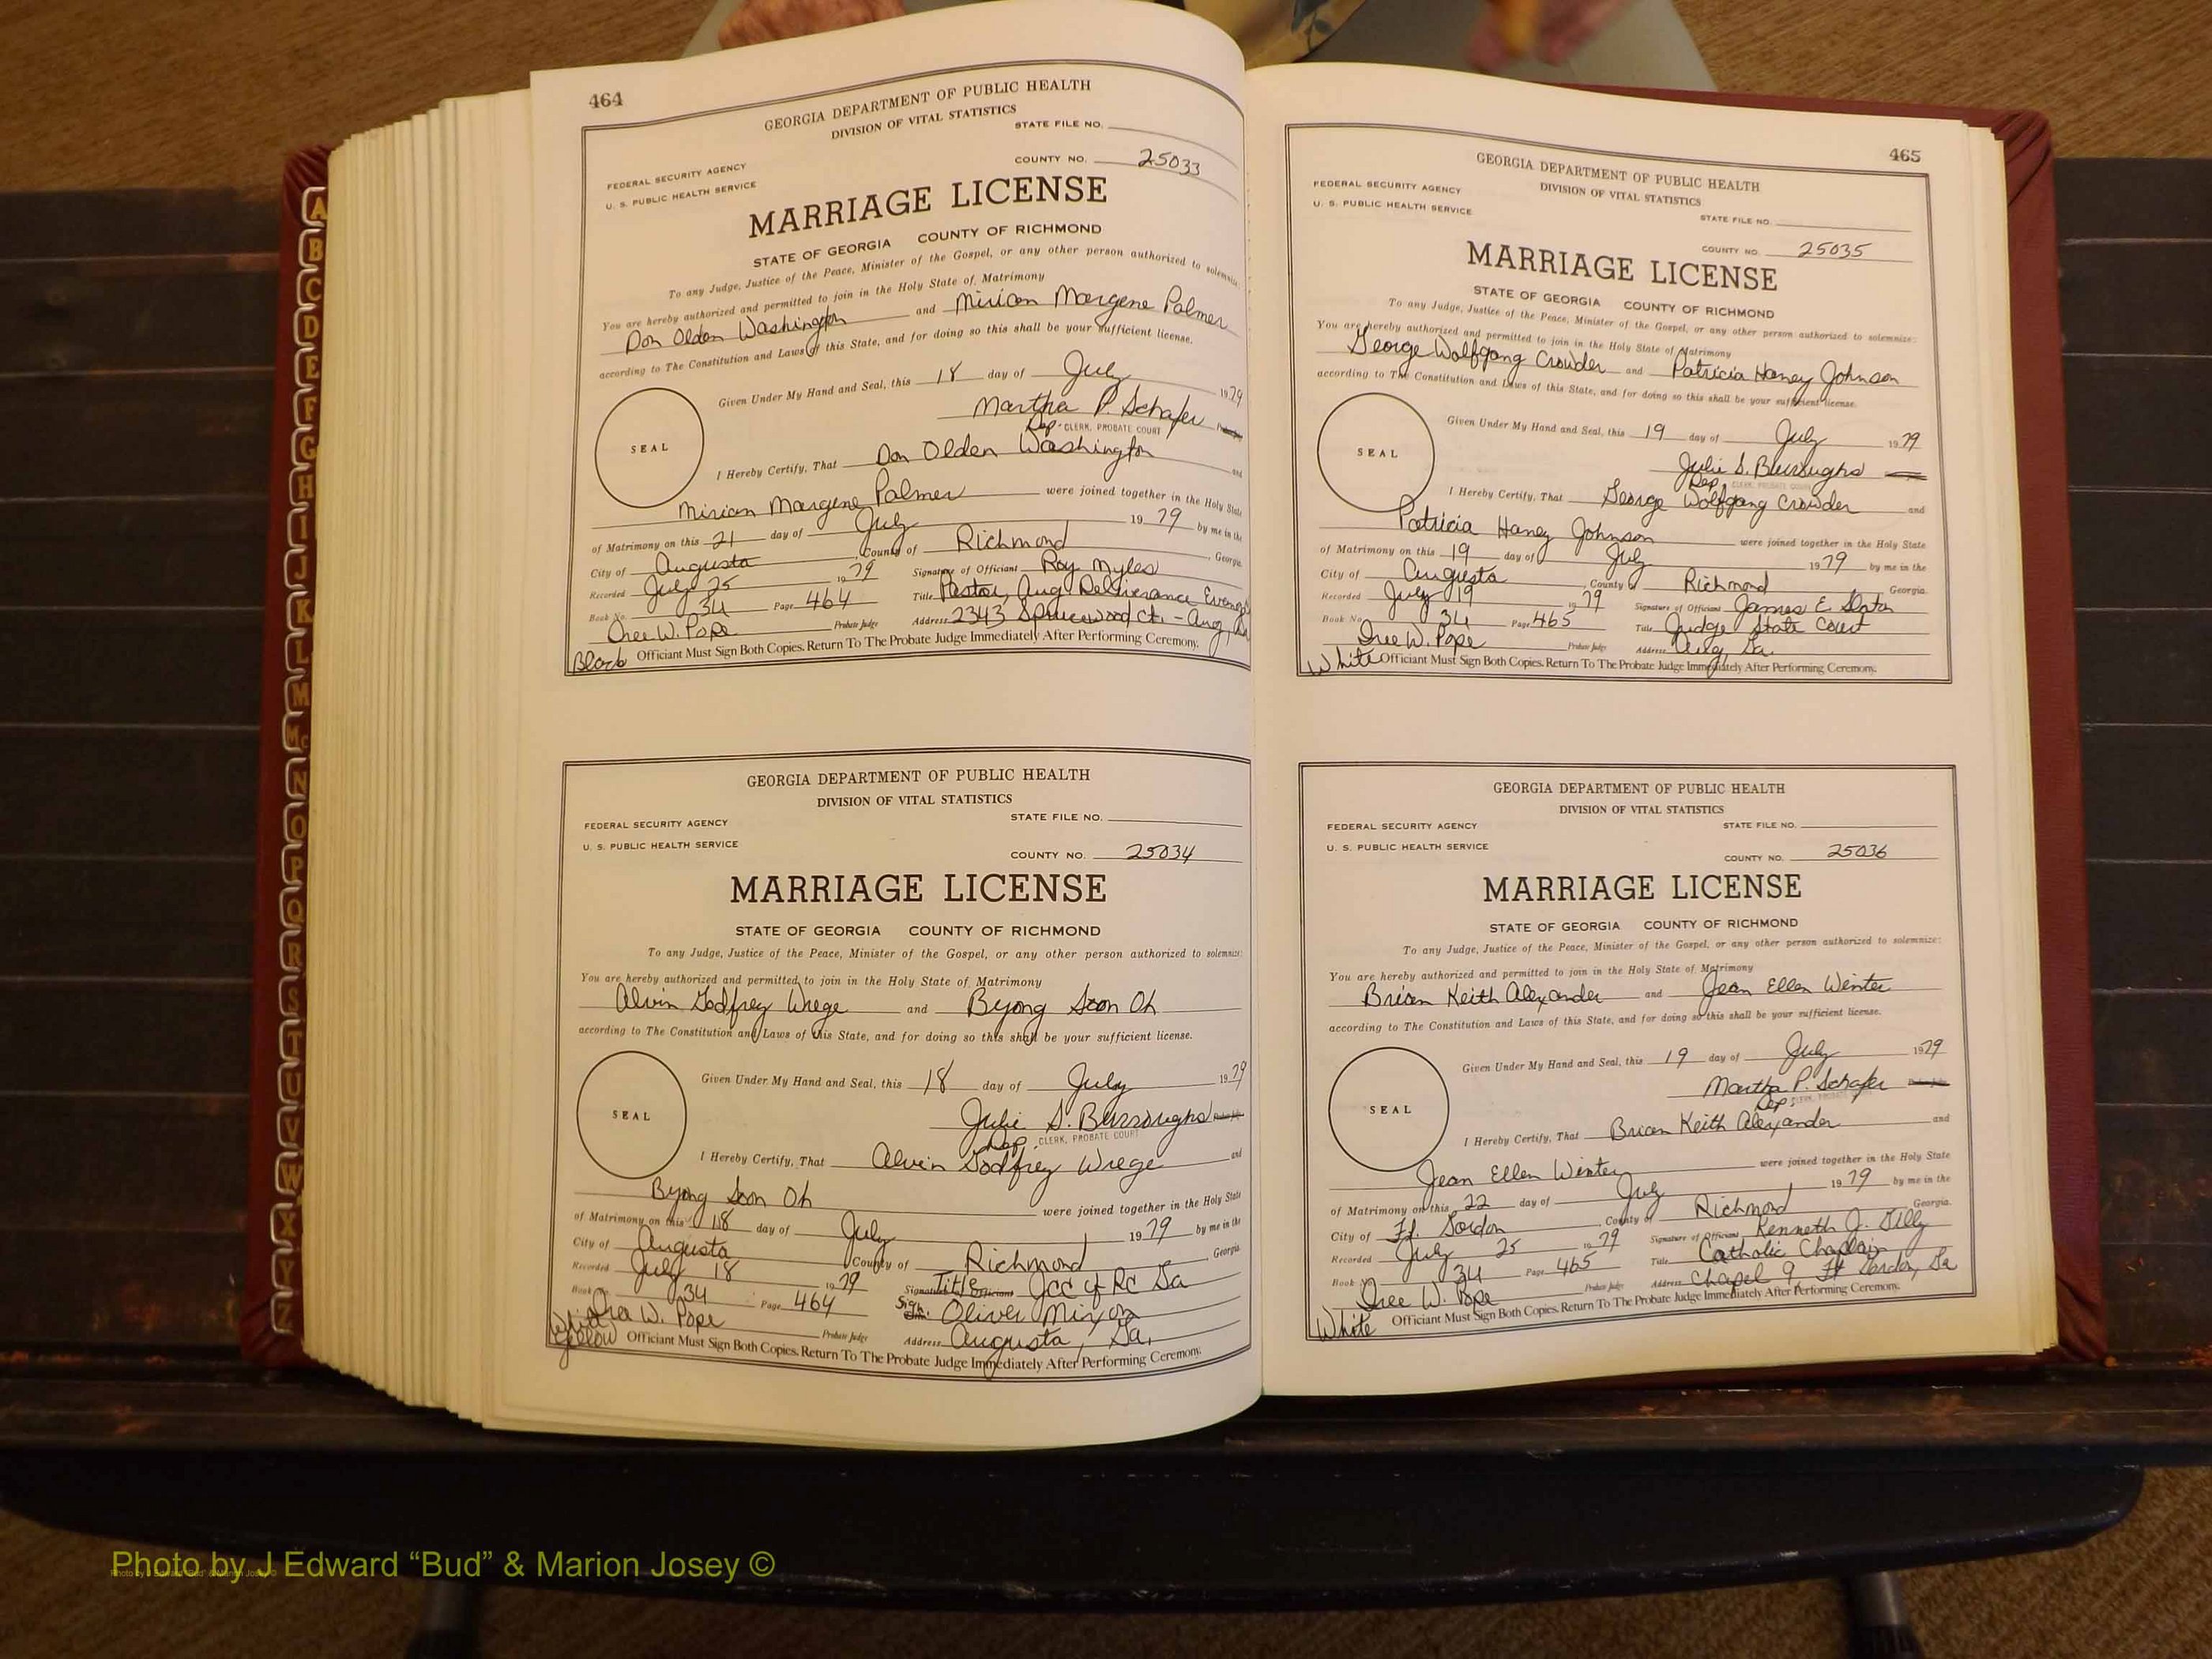 464
GEORGIA DEPARTMENT OF PUBLIC HEALTH
DIVISION OF VITAL STATISTICS
STATE FILE NO.
FEDERAL SECURITY AGENCY
COUNTY NO. 25033
U. S. PUBLIC HEALTH SERVICE
MARRIAGE LICENSE
STATE OF GEORGIA COUNTY OF RICHMOND
To any Judge, Justice of the Peace, Minister of the Gospel, or any other person authorized to solemnize:
You are hereby authorized and permitted to join in the Holy State of Matrimony
Don Olden Washington and Mirian Margene Palmer
according to The Constitution and Laws of this State, and for doing so this shall be your sufficient license.
Given Under My Hand and Seal, this 18 day of July 1979
Martha P. Schafer
SEAL
Dep. CLERK, PROBATE COURT
I Hereby Certify, That Don Olden Washington and
Mirian Margene Palmer were joined together in the Holy State
of Matrimony on this 21 day of July 1979 by me in the
City of Augusta, County of Richmond, Georgia.
Recorded July 25 1979 Signature of Officiant Roy Myles
Book No. 34 Page 464 Title Pastor, Aug Deliverance
Oree W. Pope Probate Judge Address 2343 Sprucewood Ct. - Aug,
Black Officiant Must Sign Both Copies. Return To The Probate Judge Immediately After Performing Ceremony.
GEORGIA DEPARTMENT OF PUBLIC HEALTH
DIVISION OF VITAL STATISTICS
STATE FILE NO.
FEDERAL SECURITY AGENCY
U. S. PUBLIC HEALTH SERVICE
COUNTY NO. 25034
MARRIAGE LICENSE
STATE OF GEORGIA COUNTY OF RICHMOND
To any Judge, Justice of the Peace, Minister of the Gospel, or any other person authorized to solemnize:
You are hereby authorized and permitted to join in the Holy State of Matrimony
Alvin Godfrey Wrege and Byong Soon Oh
according to The Constitution and Laws of this State, and for doing so this shall be your sufficient license.
Given Under My Hand and Seal, this 18 day of July 1979
Julie S. Burroughs
SEAL
Dep. CLERK, PROBATE COURT
I Hereby Certify, That Alvin Godfrey Wrege and
Byong Soon Oh were joined together in the Holy State
of Matrimony on this 18 day of July 1979 by me in the
City of Augusta County of Richmond, Georgia.
Recorded July 18 1979 Signature of Officiant Title JCC of RC Ga
Book No. 34 Page 464 Sig. Oliver Mixon
Oree W. Pope Probate Judge Address Augusta, Ga.
White Yellow Officiant Must Sign Both Copies. Return To The Probate Judge Immediately After Performing Ceremony.
465
GEORGIA DEPARTMENT OF PUBLIC HEALTH
DIVISION OF VITAL STATISTICS
FEDERAL SECURITY AGENCY
U. S. PUBLIC HEALTH SERVICE
STATE FILE NO.
COUNTY NO. 25035
MARRIAGE LICENSE
STATE OF GEORGIA COUNTY OF RICHMOND
To any Judge, Justice of the Peace, Minister of the Gospel, or any other person authorized to solemnize:
You are hereby authorized and permitted to join in the Holy State of Matrimony
George Wolfgang Crowder and Patricia Haney Johnson
according to The Constitution and Laws of this State, and for doing so this shall be your sufficient license.
Given Under My Hand and Seal, this 19 day of July 1979
Julie S. Burroughs
SEAL
Dep. CLERK, PROBATE COURT
I Hereby Certify, That George Wolfgang Crowder and
Patricia Haney Johnson were joined together in the Holy State
of Matrimony on this 19 day of July 1979 by me in the
City of Augusta, County of Richmond Georgia.
Recorded July 19 1979 Signature of Officiant James E. Slaton
Book No. 34 Page 465 Title Judge State Court
Oree W. Pope Probate Judge Address Aug, Ga.
White Officiant Must Sign Both Copies. Return To The Probate Judge Immediately After Performing Ceremony.
GEORGIA DEPARTMENT OF PUBLIC HEALTH
DIVISION OF VITAL STATISTICS
FEDERAL SECURITY AGENCY STATE FILE NO.
U. S. PUBLIC HEALTH SERVICE
COUNTY NO. 25036
MARRIAGE LICENSE
STATE OF GEORGIA COUNTY OF RICHMOND
To any Judge, Justice of the Peace, Minister of the Gospel, or any other person authorized to solemnize:
You are hereby authorized and permitted to join in the Holy State of Matrimony
Brian Keith Alexander and Jean Ellen Winter
according to The Constitution and Laws of this State, and for doing so this shall be your sufficient license.
Given Under My Hand and Seal, this 19 day of July 1979
Martha P. Schafer
SEAL
Dep. CLERK, PROBATE COURT
I Hereby Certify, That Brian Keith Alexander and
Jean Ellen Winter were joined together in the Holy State
of Matrimony on this 22 day of July 1979 by me in the
City of Ft. Gordon, County of Richmond Georgia.
Recorded July 25 1979 Signature of Officiant Kenneth J. Tilly
Book No. 34 Page 465 Title Catholic Chaplain
Oree W. Pope Probate Judge Address Chapel 9, Ft Gordon, Ga
White Officiant Must Sign Both Copies. Return To The Probate Judge Immediately After Performing Ceremony.
A
B
C
D
E
F
G
H
I
J
K
L
M
Mc
N
O
P
Q
R
S
T
U
V
W
X
Y
Z
Photo by J Edward “Bud” & Marion Josey ©